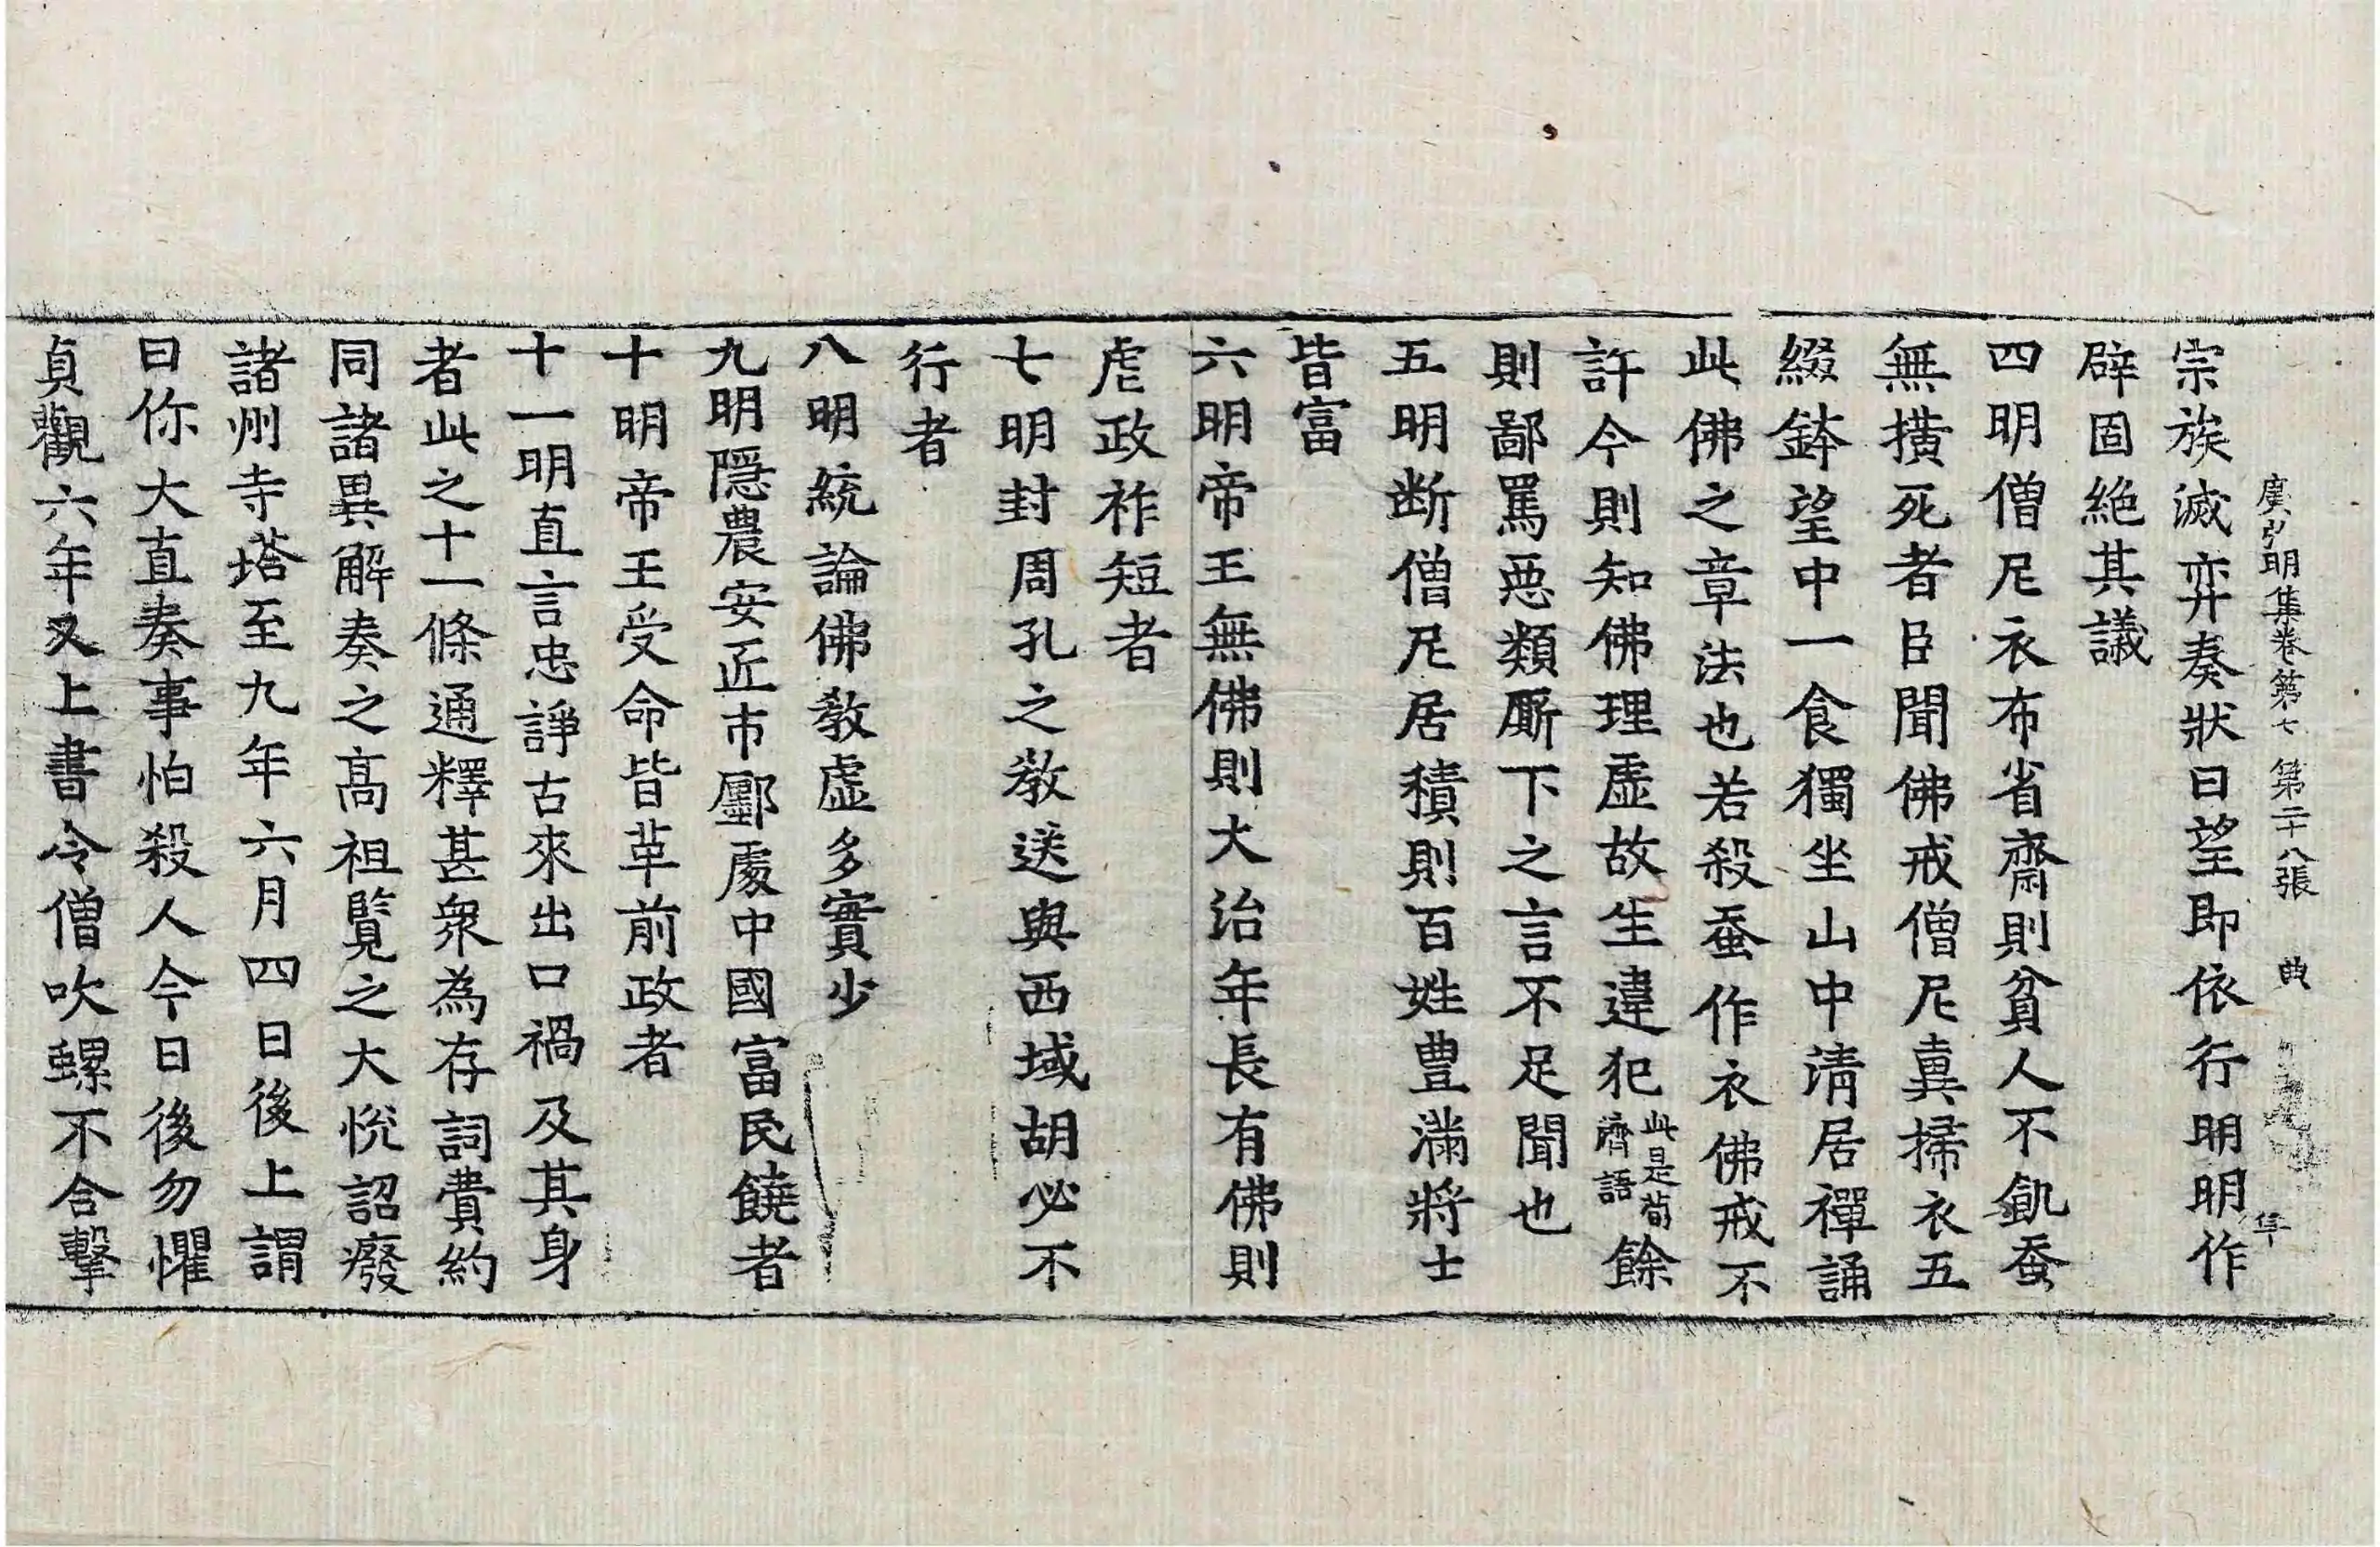 廣弘明集卷第七 第二十八張 典
宗族滅弈奏狀曰望即依行明明作
辟固絕其議
四明僧尼衣布省齋則貧人不飢蚕
無撗死者臣聞佛戒僧尼真掃衣五
綴鉢望中一食獨坐山中清居禪誦
此佛之章法也若殺蚕作衣佛戒不
許今則知佛理虛故生違犯此是荀濟語餘
則鄙罵惡類厮下之言不足聞也
五明断僧尼居積則百姓豊滿將士
皆富
六明帝王無佛則大治年長有佛則
虐政祚短者
七明封周孔之教送與西域胡必不
行者
八明統論佛教虛多實少
九明隠農安近市鄽處中國富民饒者
十明帝王受命皆革前政者
十一明直言忠諍古來出口禍及其身
者此之十一條通釋甚衆為存詞費約
同諸異解奏之高祖覧之大悅詔癈
諸州寺塔至九年六月四日後上謂
曰你大直奏事怕殺人今日後勿懼
貞觀六年又上書令僧吹螺不合擊